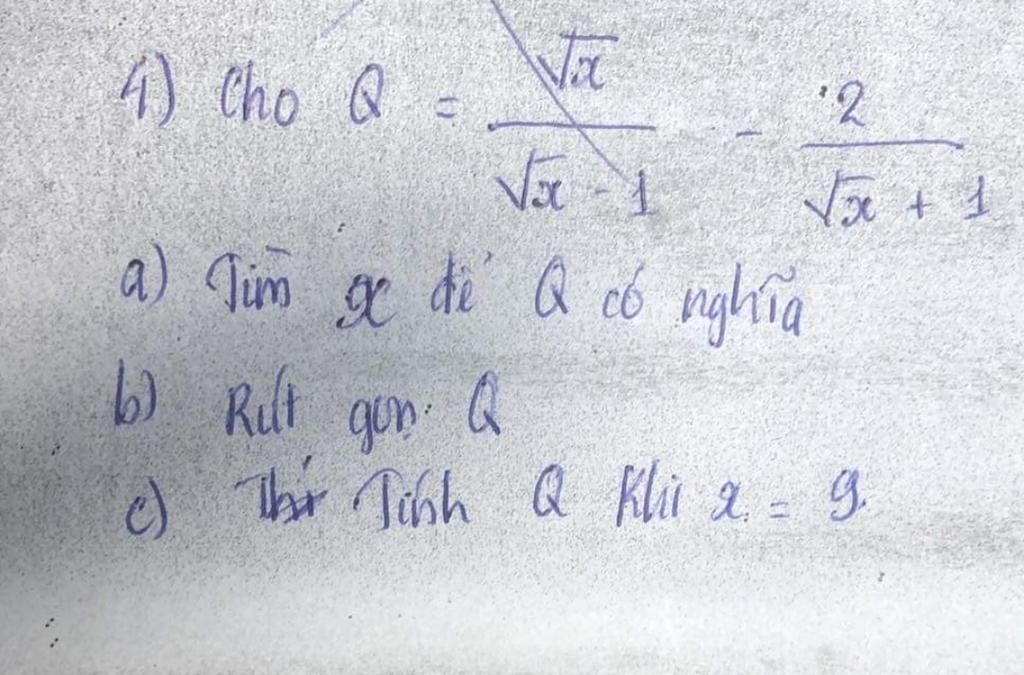 4) Cho Q = \frac{\sqrt{x}}{\sqrt{x} - 1} - \frac{2}{\sqrt{x} + 1}
a) Tìm x để Q có nghĩa
b) Rút gọn Q
c) Tính Q Khi x = 9.